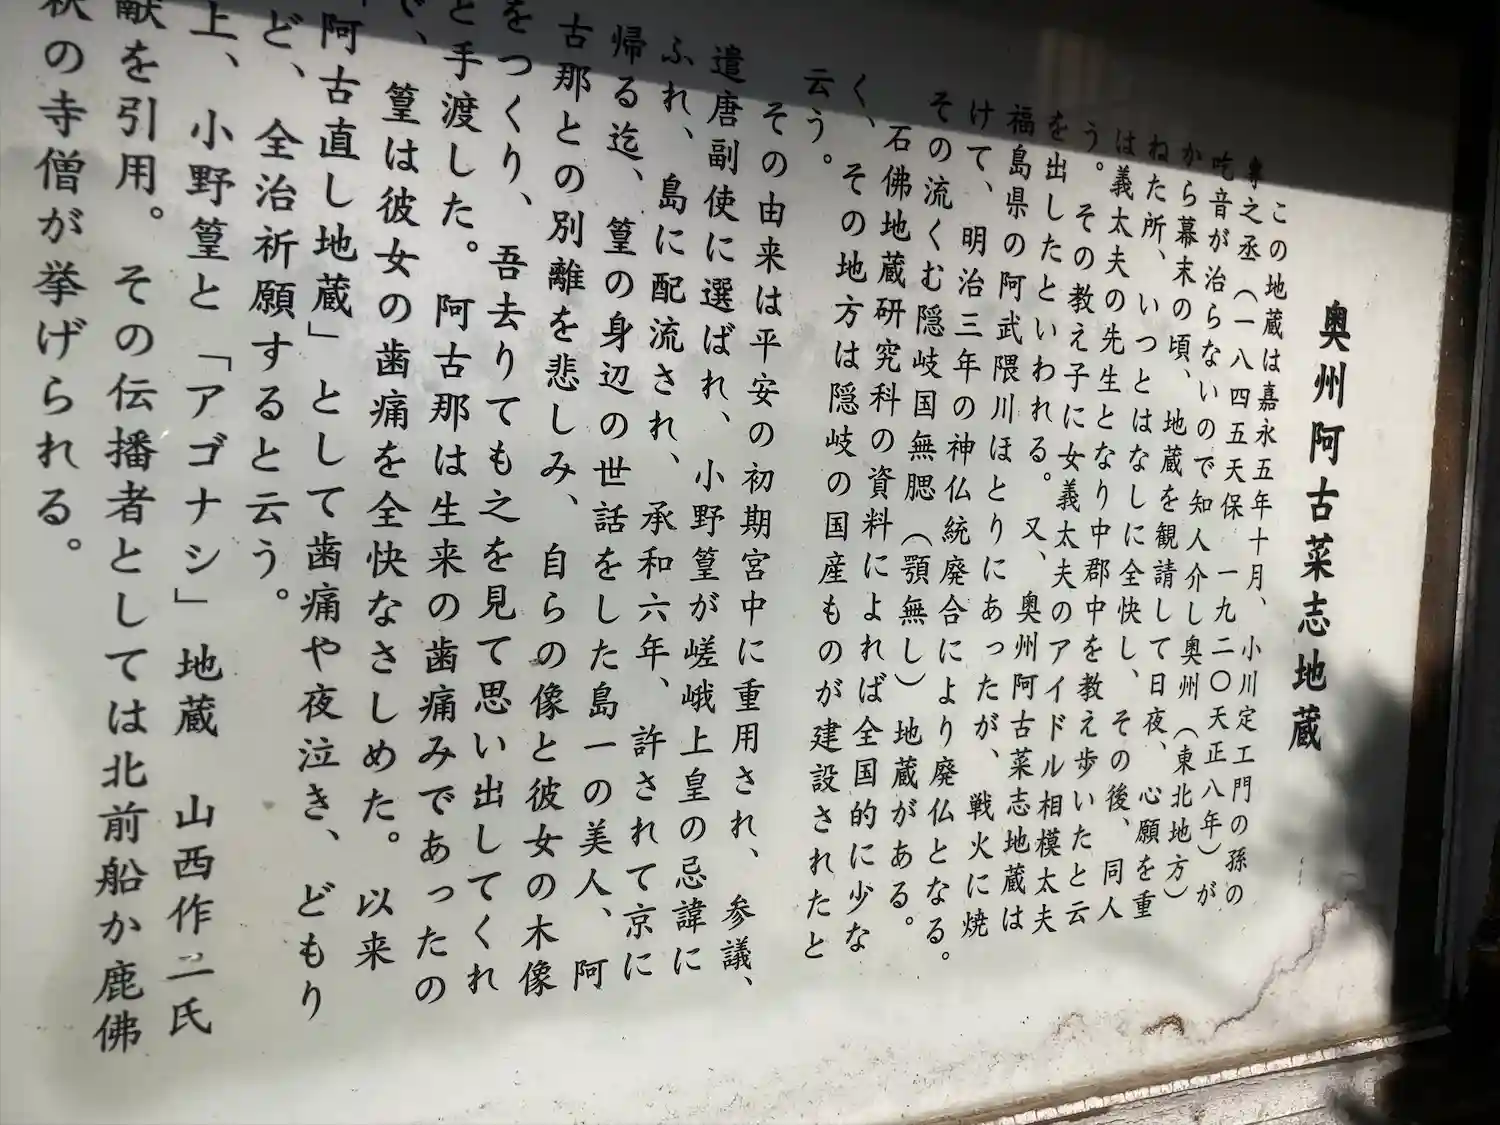 奥州阿古菜志地蔵
この地蔵は嘉永五年十月、小川定工門の孫の
専之丞（一八四五天保　一九二〇天正八年）が
吃音が治らないので知人介し奥州（東北地方）
から幕末の頃、地蔵を観請して日夜、心願を重
ねた所、いつとはなしに全快し、その後、同人
は義太夫の先生となり中郡中を教え歩いたと云
う。その教え子に女義太夫のアイドル相模太夫
を出したといわれる。又、奥州阿古菜志地蔵は
福島県の阿武隈川ほとりにあったが、戦火に焼
けて、明治三年の神仏統廃合により廃仏となる。
その流くむ隠岐国無腮（顎無し）地蔵がある。
石佛地蔵研究科の資料によれば全国的に少な
く、その地方は隠岐の国産ものが建設されたと
云う。
その由来は平安の初期宮中に重用され、参議、
遣唐副使に選ばれ、小野篁が嵯峨上皇の忌諱に
ふれ、島に配流され、承和六年、許されて京に
帰る迄、篁の身辺の世話をした島一の美人、阿
古那との別離を悲しみ、自らの像と彼女の木像
をつくり、吾去りても之を見て思い出してくれ
と手渡した。阿古那は生来の歯痛みであったの
で、篁は彼女の歯痛を全快なさしめた。以来
「阿古直し地蔵」として歯痛や夜泣き、どもり
ど、全治祈願すると云う。
上、小野篁と「アゴナシ」地蔵　山西作二氏
献を引用。その伝播者としては北前船か鹿佛
秋の寺僧が挙げられる。